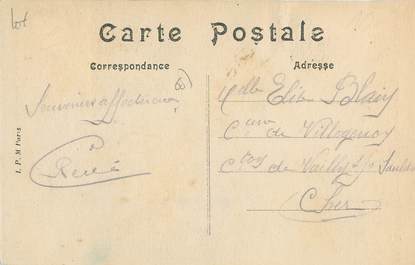 lot
Carte Postale
Correspondance
Adresse
Souvenirs affectueux
René
I. P. M Paris
Melle Elise Blain
Cne de Villegenon
Cton de Vailly s/s Sauldre
Cher